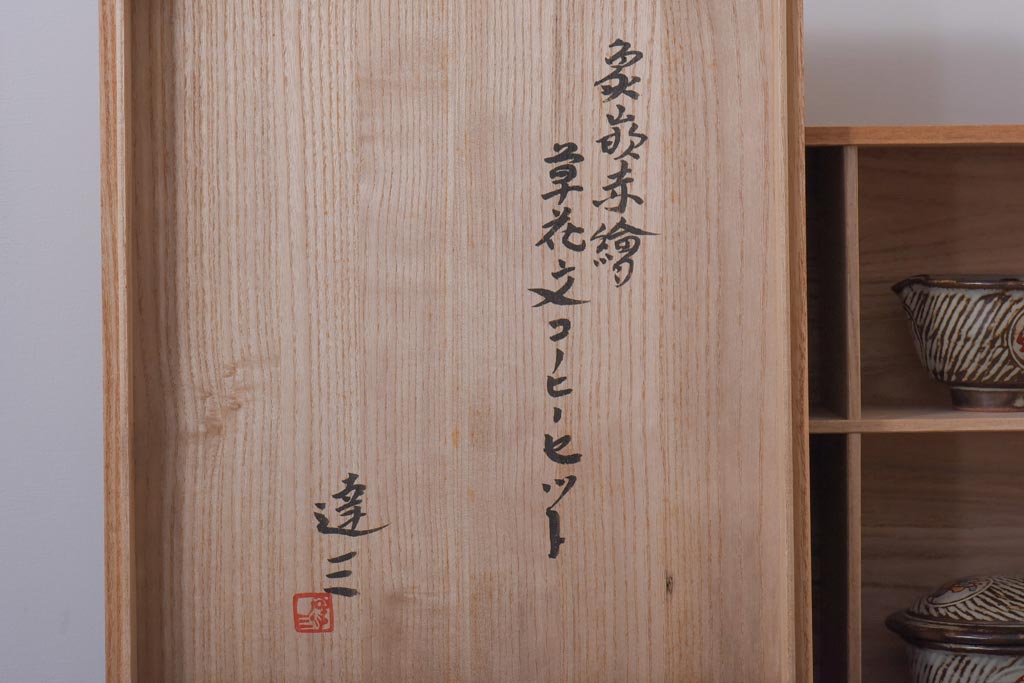 象嵌赤繪
草花文コーヒーセット
達三